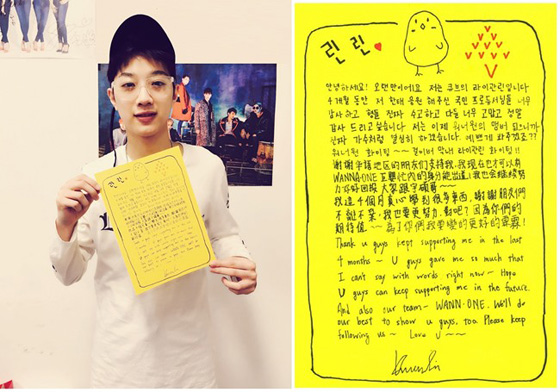 린린
안녕하세요! 오랜만이에요 저는 큐브의 라이관린입니다
4개월 동안 저 한테 응원 해주신 국민 프로듀서님들 너무
감사 하고 형들 진짜 수고하고 다들 너무 고맙고 정말
감사 드리고 싶습니다 저는 이제 워너원의 멤버 됐으니까
진짜 가수처럼 열심히 하겠습니다. 예쁘게 봐주실죠??
워너원 화이팅~~ 걸어버 막내 라이관린 화이팅!!
謝謝 地區的朋友們支持我,我現在才可以有
WANNA·ONE 的身分能出道!我也會繼續努
力好好回報大家跟守護著~
我這4個月真心學到很多東西,謝謝朋友們
不離不棄,我也要更努力,對吧?因為你們的
期待值~為了你們我要變的更好的冠霖!
Thank u guys kept supporting me in the last
4 months~ U guys gave me so much that
I cant say with words right now~ Hope
U guys can keep supporting me in the future.
And also our team~ WANN·ONE. We'll do
our best to show u guys, too. Please keep
following us~ Love U~~